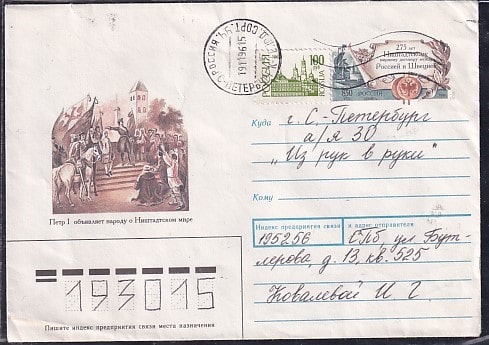 РОССИЯ, С-ПЕТЕРБУРГ
19 11 96 15
100
РОССИЯ
275 лет
Ништадтскому
мирному договору между
Россией и Швецией
850 РОССИЯ
Куда г. С.-Петербург
а/я 30
"Из рук в руки"
Кому
Петр I объявляет народу о Ништадтском мире
Индекс предприятия связи и адрес отправителя
195256 СПб, ул Бут-
лерова д. 13, кв. 525
Ковалевой И. Г.
193015
Пишите индекс предприятия связи места назначения